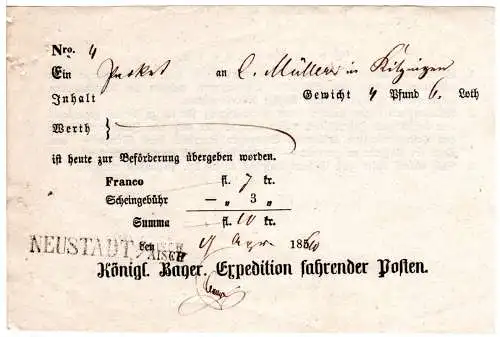 Nro. 4
Ein Packet an C. Müller in Kitzingen
Inhalt Gewicht 4 Pfund 6. Loth
Werth }
ist heute zur Beförderung übergeben worden.
Franco — fl. 7 kr.
Scheingebühr — „ 3 „
Summa — fl. 10 kr.
NEUSTADT A/AISCH den 9 Apr 1860
Königl. Bayer. Expedition fahrender Posten.